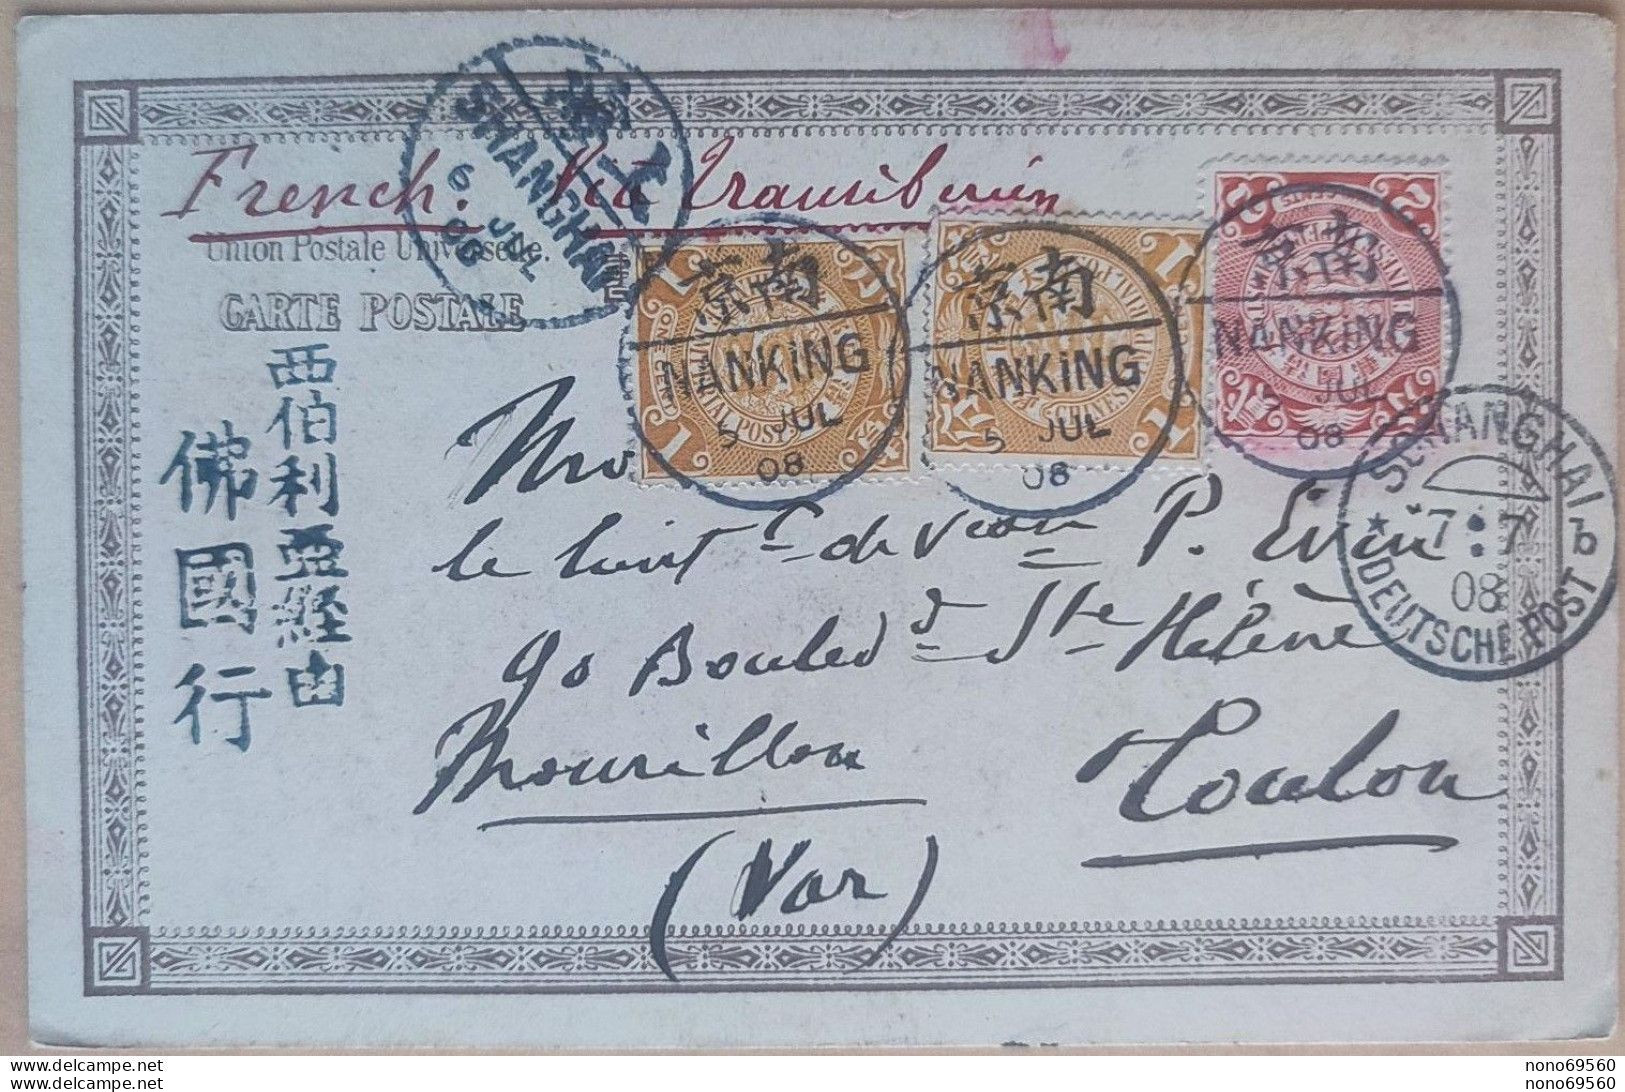 French. Via Transiberien
Union Postale Universelle.
CARTE POSTALE
上海
SHANGHAI
6 JUL
08
南京
NANKING
5 JUL
08
南京
NANKING
5 JUL
08
南京
NANKING
5 JUL
08
SCHANGHAI
*7.7 b
08
DEUTSCHE POST
西伯利亞經由
佛國行
le lieutt de Veau P. Evin
90 Bouled Ste Hélène
Mourillon Toulon
(Var)
www.delcampe.net nono69560
www.delcampe.net nono69560